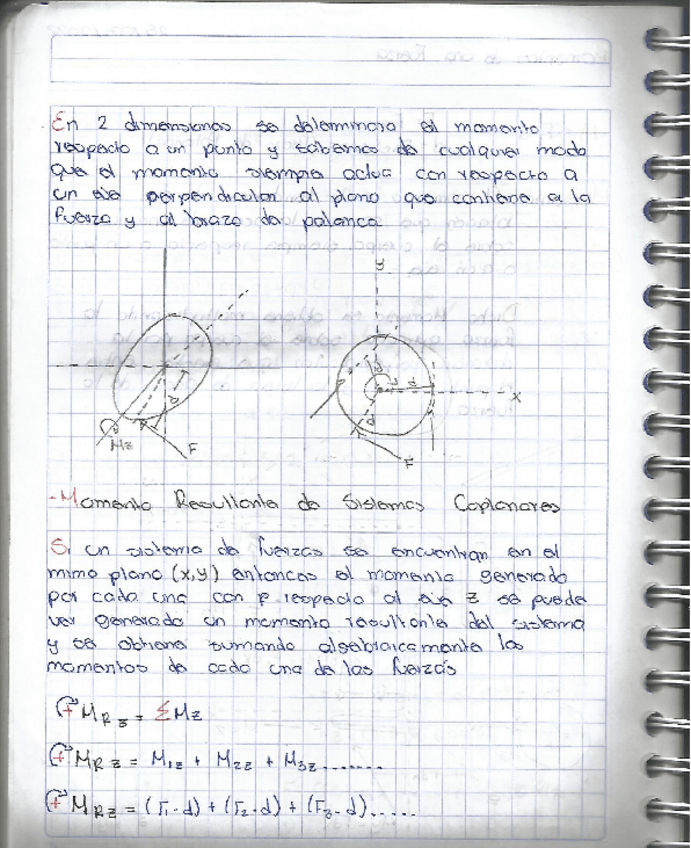 En 2 dimensiones se determinara el momento
respecto a un punto y sabemos de cualquier modo
que el momento siempre actua con respecto a
un eje perpendicular al plano que contiene a la
fuerza y al brazo de palanca
y
d
Mz
F
d
d
d
x
F
-Momento Resultante de Sistemas Coplanares
Si un sistema de fuerzas se encuentran en el
mimo plano (x,y) entonces el momento generado
por cada una con respecto al eje z se puede
ver generado un momento resultante del sistema
y se obtiene sumando algebraicamente los
momentos de cada una de las fuerzas
+ M R z = Σ Mz
+ M R z = M1z + M2z + M3z .......
+ M R z = (F1·d) + (F2·d) + (F3·d).....